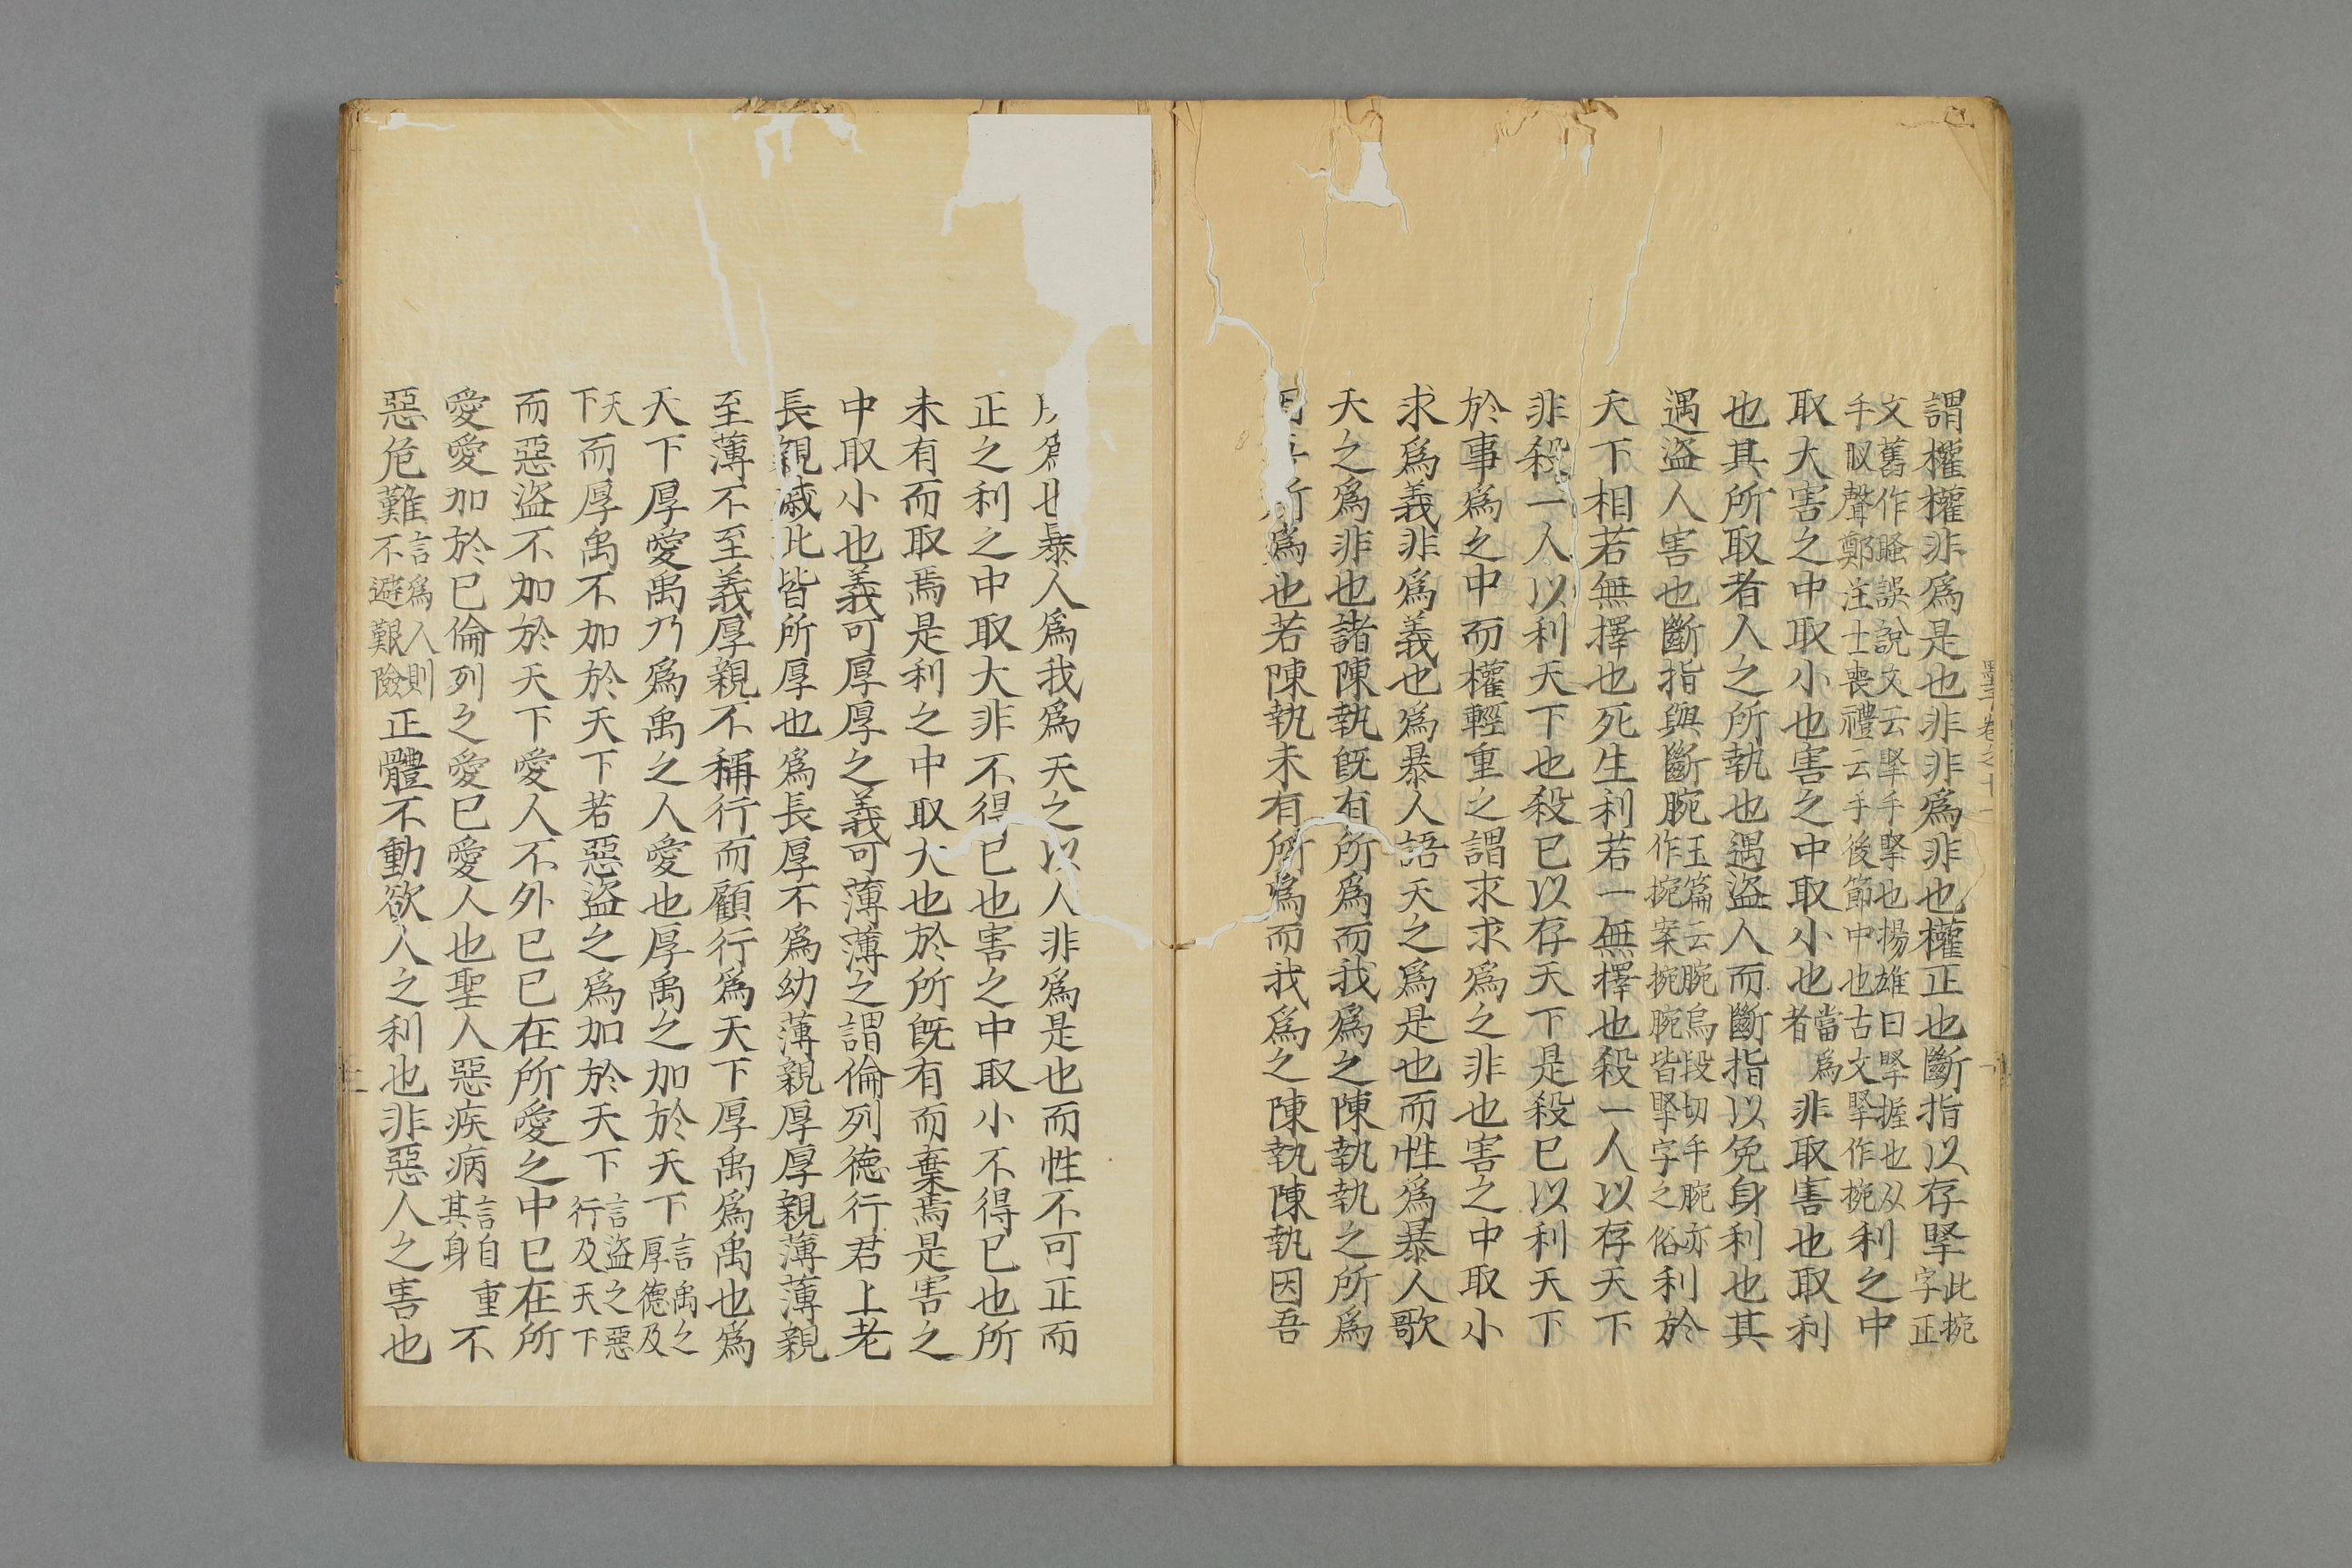 墨子卷之十一 一
謂權權非爲是也非非爲非也權正也斷指以存掔此捥字正
文舊作䐉誤說文云掔手掔也揚雄曰掔握也从手臤聲鄭注士喪禮云手後節中也古文掔作捥利之中
取大害之中取小也害之中取小也當爲者非取害也取利
也其所取者人之所執也遇盜人而斷指以免身利也其
遇盜人害也斷指與斷腕玉篇云腕烏段切手腕亦作捥案捥腕皆掔字之俗利於
天下相若無擇也死生利若一無擇也殺一人以存天下
非殺一人以利天下也殺已以存天下是殺已以利天下
於事爲之中而權輕重之謂求求爲之非也害之中取小
求爲義非爲義也爲暴人語天之爲是也而性爲暴人歌
天之爲非也諸陳執旣有所爲而我爲之陳執執之所爲
所爲也若陳執未有所爲而我爲之陳執陳執因吾
爲也暴人爲我爲天之以人非爲是也而性不可正而
正之利之中取大非不得已也害之中取小不得已也所
未有而取焉是利之中取大也於所旣有而棄焉是害之
中取小也義可厚厚之義可薄薄之謂倫列德行君上老
長親戚此皆所厚也爲長厚不爲幼薄親厚厚親薄薄親
至薄不至義厚親不稱行而顧行爲天下厚禹爲禹也爲
天下厚愛禹乃爲禹之人愛也厚禹之加於天下言禹之厚德及
天下而厚禹不加於天下若惡盜之爲加於天下言盜之惡行及天下
而惡盜不加於天下愛人不外已已在所愛之中已在所
愛愛加於已倫列之愛已愛人也聖人惡疾病言自重其身不
惡危難言爲人則不避艱險正體不動欲人之利也非惡人之害也
二